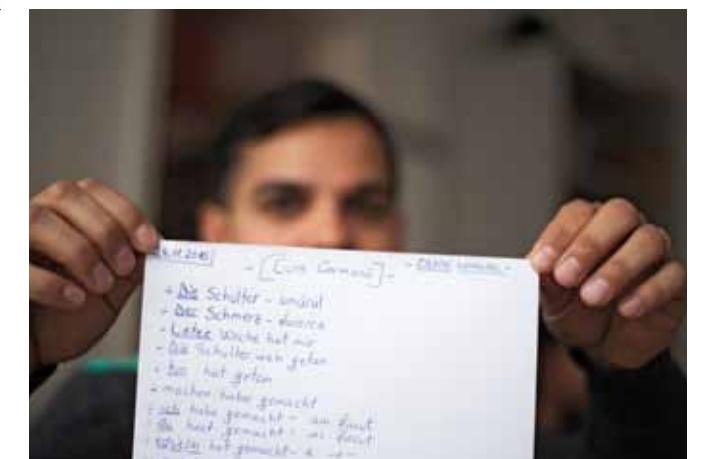 - [Curs Germană] -
+ Die Schulter - umărul
+ Der Schmerz - durerea
- Letze Woche hat mir
- Die Schulter weh getan
+ hat getan
+ machen habe gemacht
- ich habe gemacht - am făcut
- du hast gemacht - ai făcut
hat gemacht - a